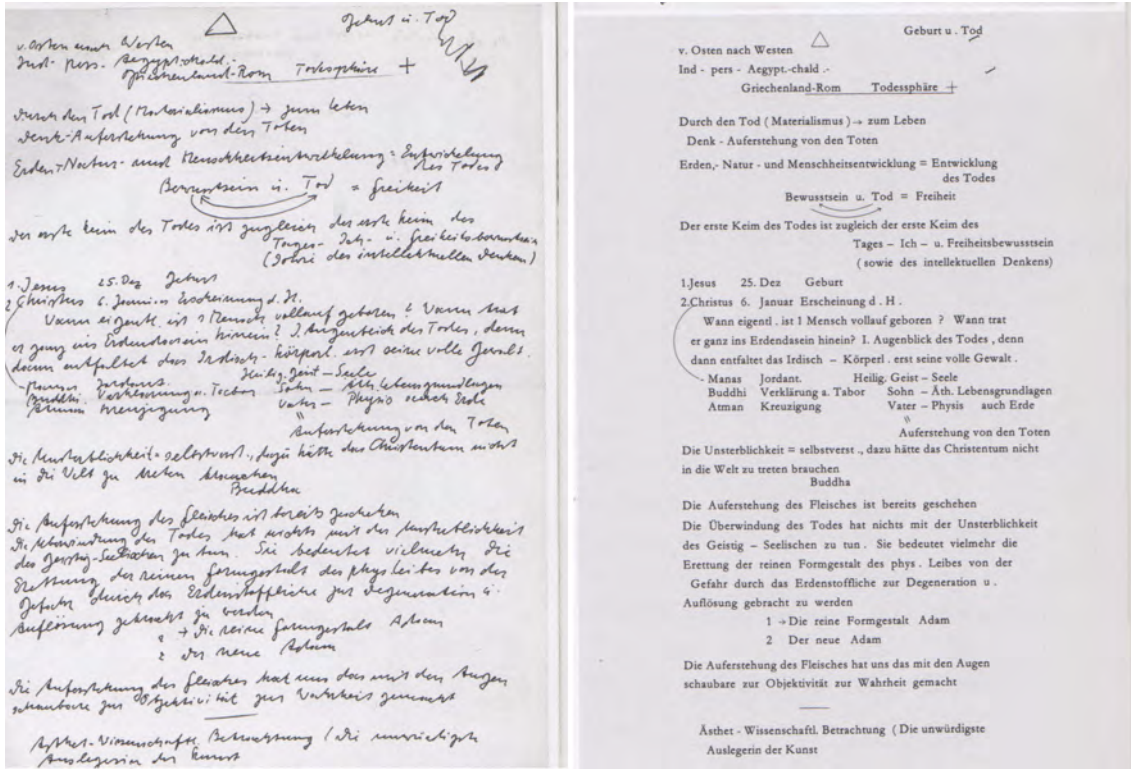 Geburt u. Tod
v. Osten nach Westen
Ind - pers. - Aegypt.-chald.-
Griechenland-Rom Todessphäre +
Durch den Tod (Materialismus) → zum Leben
Denk-Auferstehung von den Toten
Erden,-Natur- und Menschheitsentwickelung = Entwickelung
des Todes
Bewusstsein u. Tod = Freiheit
Der erste Keim des Todes ist zugleich der erste Keim des
Tages- Ich- u. Freiheitsbewusstsein
(sowie des intellektuellen Denkens)
1. Jesus 25. Dez Geburt
2. Christus 6. Januar Erscheinung d. H.
Wann eigentl. ist 1 Mensch vollauf geboren? Wann trat
er ganz ins Erdendasein hinein? I. Augenblick des Todes, denn
dann entfaltet das Irdisch-körperl. erst seine volle Gewalt.
Heilig. Geist – Seele
- Manas Jordant.
Buddhi Verklärung a. Tabor Sohn – Äth. Lebensgrundlagen
Atman Kreuzigung Vater – Physis auch Erde
"
Auferstehung von den Toten
Die Unsterblichkeit = selbstverst., dazu hätte das Christentum nicht
in die Welt zu treten brauchen
Buddha
Die Auferstehung des Fleisches ist bereits geschehen
Die Überwindung des Todes hat nichts mit der Unsterblichkeit
des Geistig-Seelischen zu tun. Sie bedeutet vielmehr die
Erettung der reinen Formgestalt des phys Leibes von der
Gefahr durch das Erdenstoffliche zur Degeneration u.
Auflösung gebracht zu werden
1 → Die reine Formgestalt Adam
2 Der neue Adam
Die Auferstehung des Fleisches hat uns das mit den Augen
schaubare zur Objektivität zur Wahrheit gemacht
Ästhet-Wissenschaftl. Betrachtung (Die unwürdigste
Auslegerin der Kunst
Geburt u . Tod
v. Osten nach Westen
Ind - pers - Aegypt.-chald .-
Griechenland-Rom Todessphäre +
Durch den Tod ( Materialismus ) → zum Leben
Denk - Auferstehung von den Toten
Erden,- Natur - und Menschheitsentwicklung = Entwicklung
des Todes
Bewusstsein u. Tod = Freiheit
Der erste Keim des Todes ist zugleich der erste Keim des
Tages – Ich – u. Freiheitsbewusstsein
( sowie des intellektuellen Denkens)
1.Jesus 25. Dez Geburt
2.Christus 6. Januar Erscheinung d . H .
Wann eigentl . ist 1 Mensch vollauf geboren ? Wann trat
er ganz ins Erdendasein hinein? I. Augenblick des Todes , denn
dann entfaltet das Irdisch – Körperl . erst seine volle Gewalt .
- Manas Jordant. Heilig. Geist – Seele
Buddhi Verklärung a. Tabor Sohn – Äth. Lebensgrundlagen
Atman Kreuzigung Vater – Physis auch Erde
"
Auferstehung von den Toten
Die Unsterblichkeit = selbstverst ., dazu hätte das Christentum nicht
in die Welt zu treten brauchen
Buddha
Die Auferstehung des Fleisches ist bereits geschehen
Die Überwindung des Todes hat nichts mit der Unsterblichkeit
des Geistig – Seelischen zu tun . Sie bedeutet vielmehr die
Erettung der reinen Formgestalt des phys . Leibes von der
Gefahr durch das Erdenstoffliche zur Degeneration u .
Auflösung gebracht zu werden
1 → Die reine Formgestalt Adam
2 Der neue Adam
Die Auferstehung des Fleisches hat uns das mit den Augen
schaubare zur Objektivität zur Wahrheit gemacht
Ästhet - Wissenschaftl. Betrachtung ( Die unwürdigste
Auslegerin der Kunst